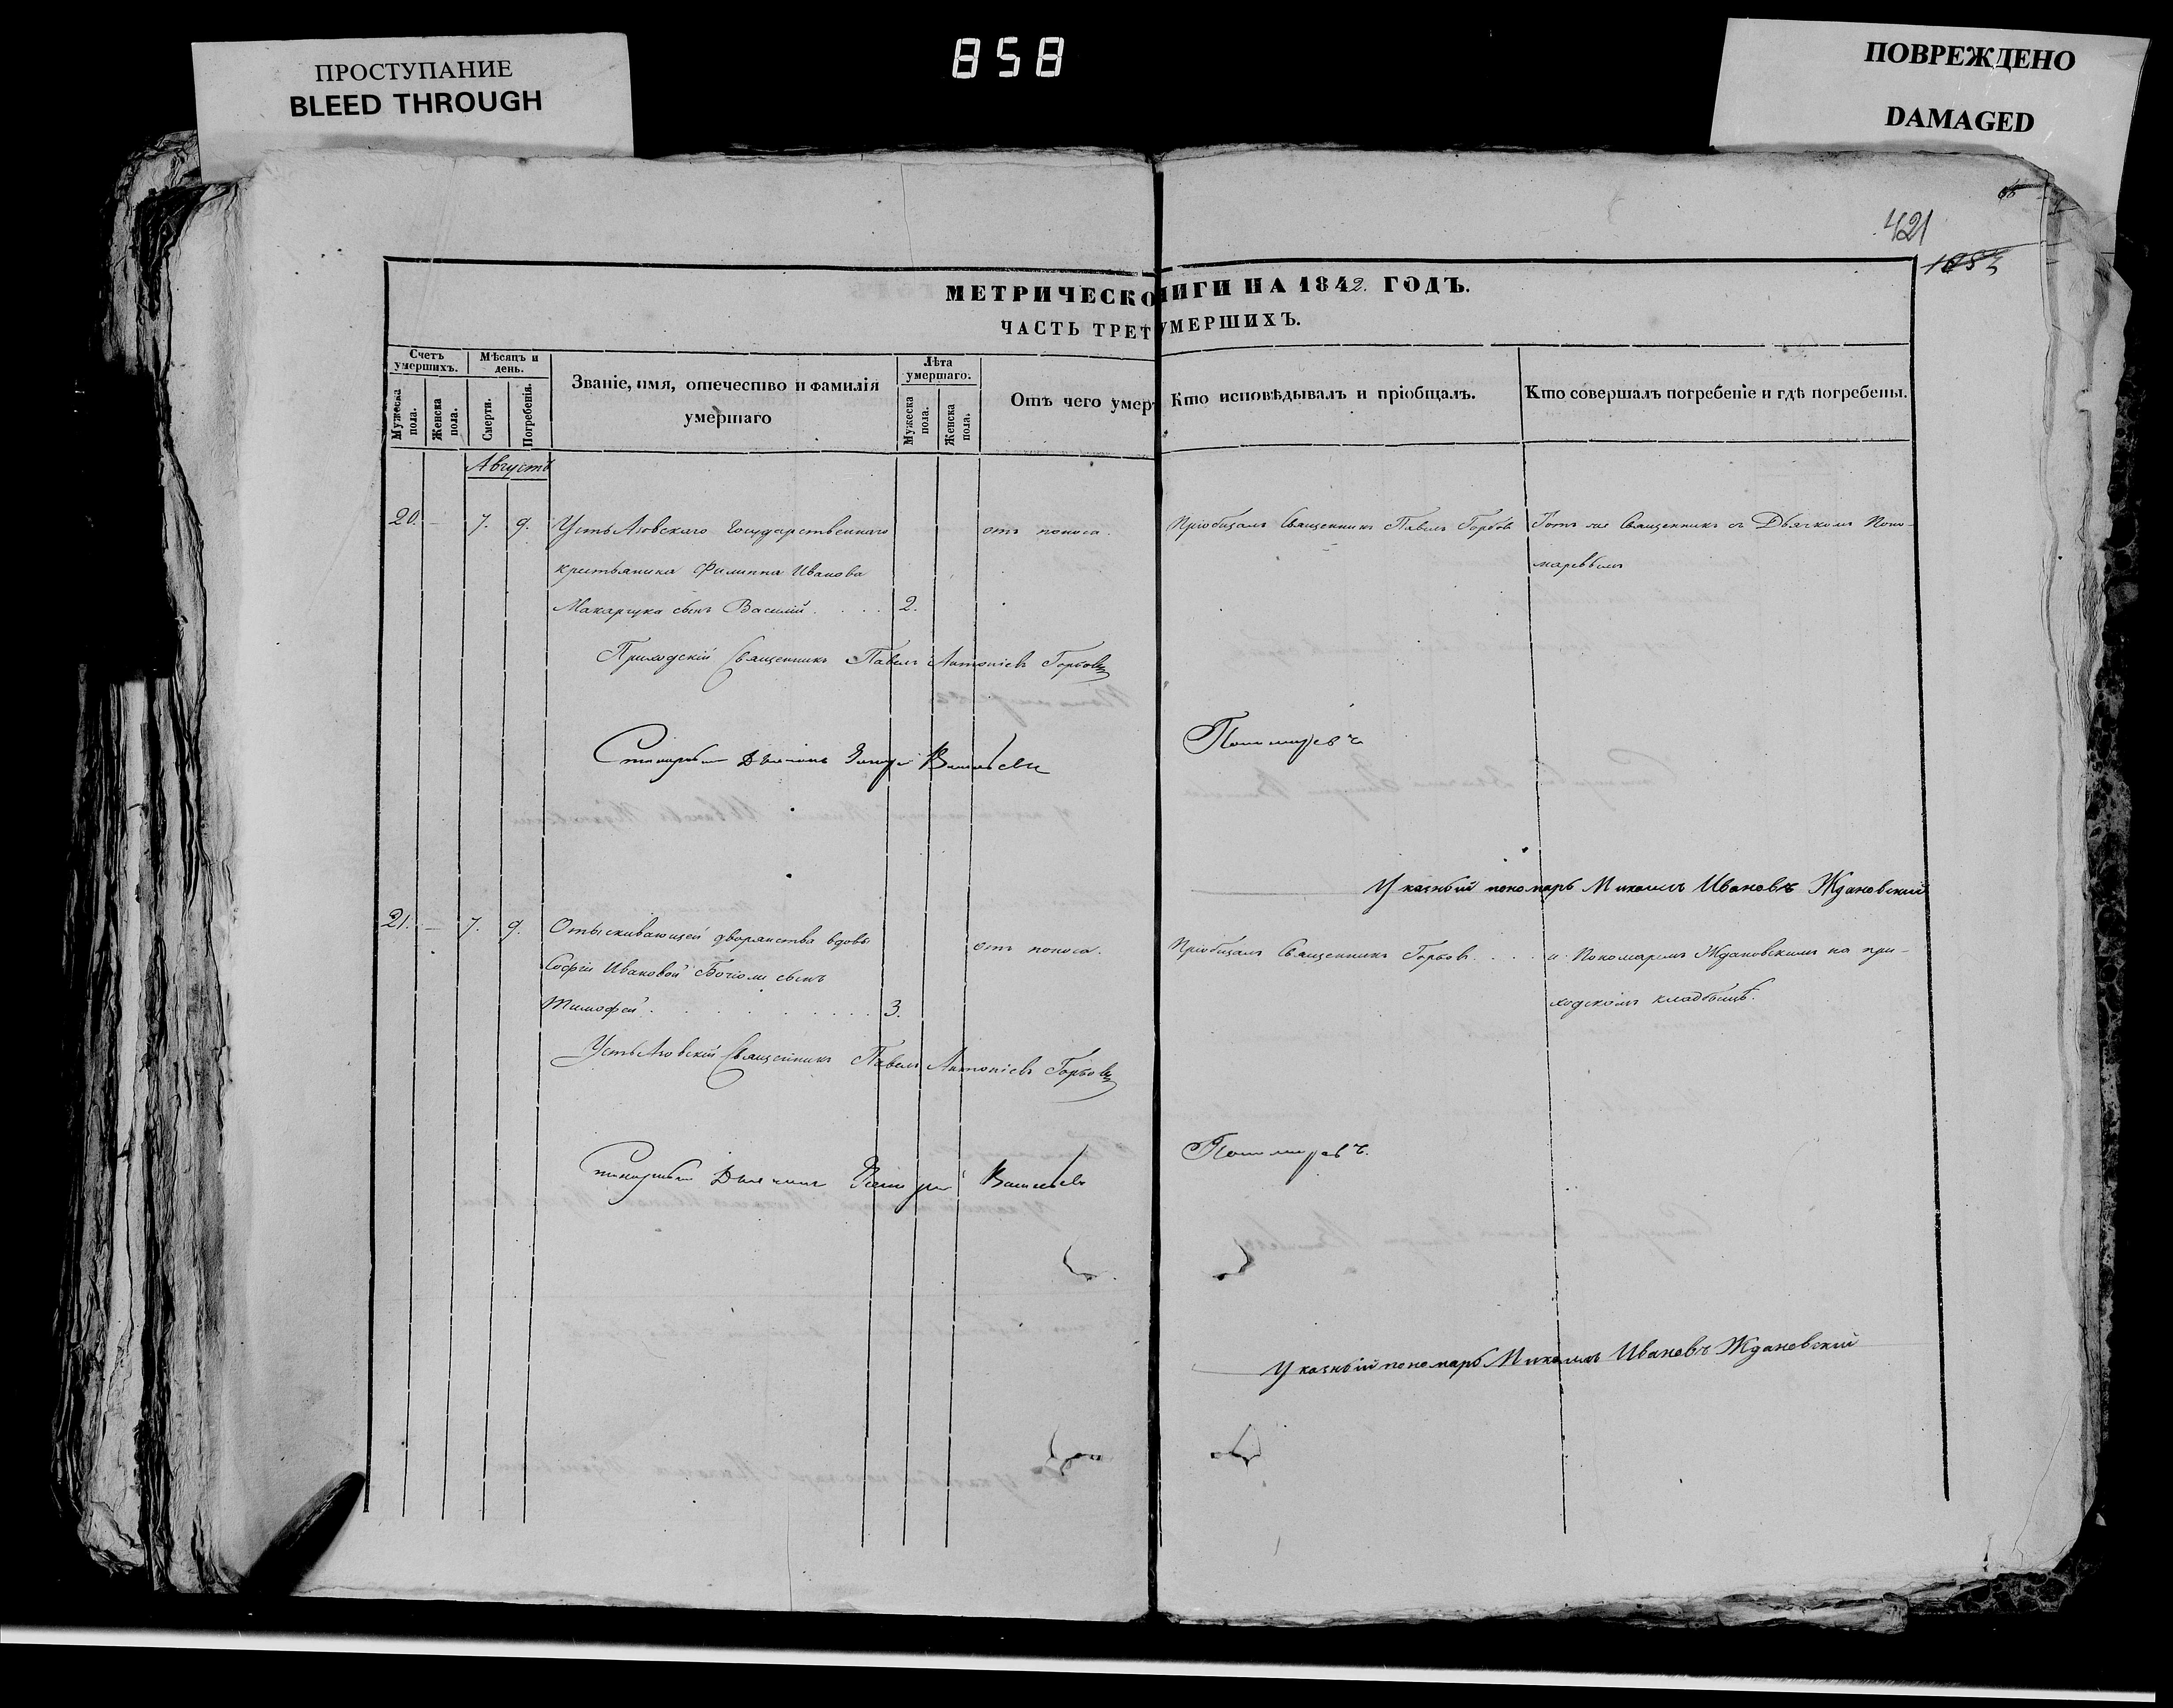 858
ПРОСТУПАНИЕ
BLEED THROUGH
ПОВРЕЖДЕНО
DAMAGED
421
МЕТРИЧЕСКО НИГИ НА 1842. ГОДЪ.
ЧАСТЬ ТРЕТ УМЕРШИХЪ.
Счетъ умершихъ.
Мужеска пола.
Женска пола.
Мѣсяцъ и день.
Смерти.
Погребенія.
Званіе, имя, отечество и фамилія
умершаго
Лѣта умершаго.
Мужеска пола.
Женска пола.
Отъ чего умер
Кто исповѣдывалъ и пріобщалъ.
Кто совершалъ погребеніе и гдѣ погребены.
Августъ
20. — 7. 9. Усть Государственнаго отъ поноса. Пріобщалъ Священникъ Павелъ Горбовъ Тотъ же Священникъ съ Дьячкомъ Поно-
крестьянина Филиппа Иванова маревымъ
Макарчука сынъ Василій 2.
Приходскій Священникъ Павелъ Антоніевъ Горбовъ
Дьячокъ Васильевъ Пономаревъ
Указный пономарь Михаилъ Ивановъ Ждановскій
21. — 7. 9. Отыскивающей дворянства вдовы отъ поноса. Пріобщалъ Священникъ Горбовъ и Пономаремъ Ждановскимъ на при-
Софіи Ивановой сынъ ходскомъ кладбищѣ.
Тимофей 3.
Священникъ Павелъ Антоніевъ Горбовъ
Дьячокъ Васильевъ Пономаревъ.
Указный пономарь Михаилъ Ивановъ Ждановскій